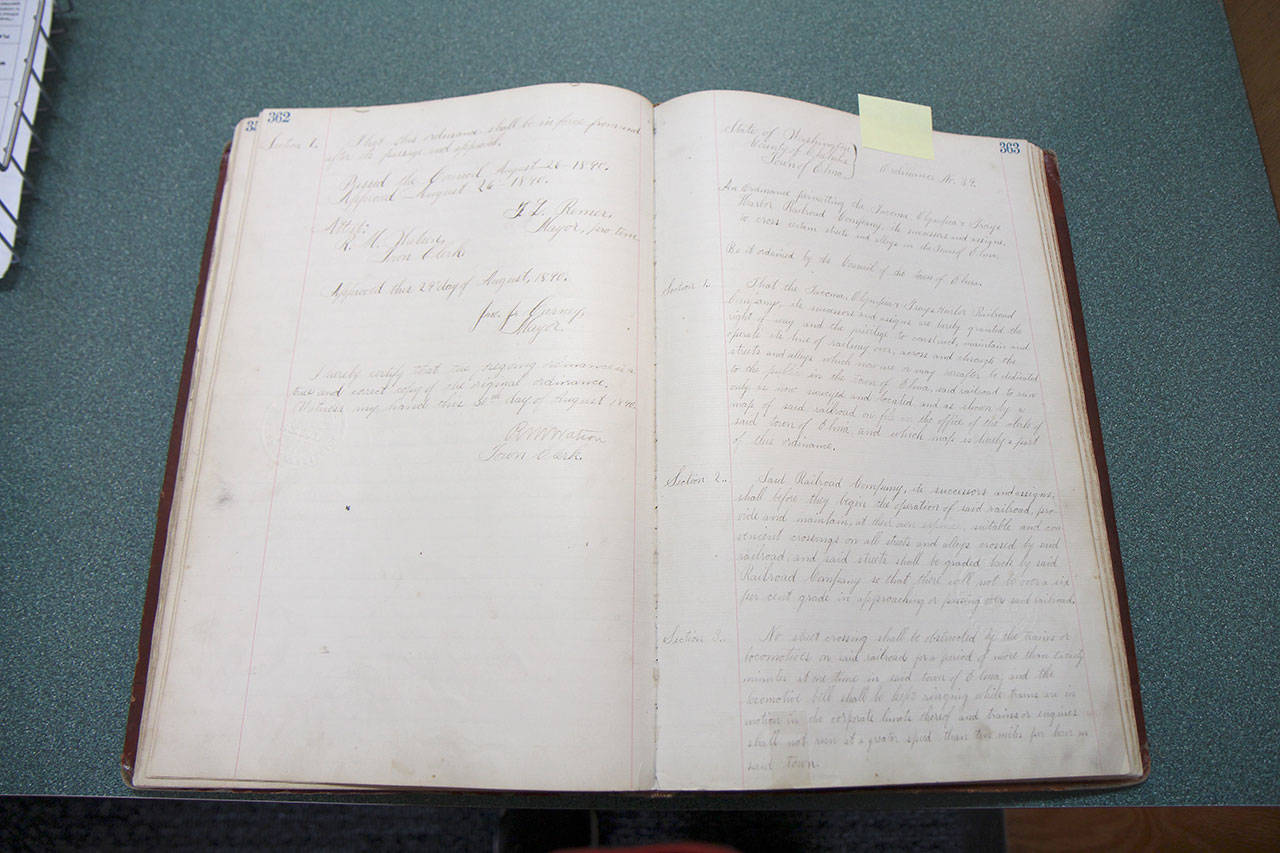 362
Section 1.
That this ordinance shall be in force from and
after its passage and approval.
Passed the Council August 26 1890.
Approved August 26 1890.
Mayor, pro tem
Attest:
Town Clerk.
Approved this 29" day of August, 1890.
Mayor.
I hereby certify that the foregoing ordinance is a
true and correct copy of the original ordinance.
Witness my hand this 30th day of August 1890.
R M Watson
Town Clerk.
363
State of Washington
County of Chehalis
Town of Elma.
Ordinance No. 39.
An Ordinance permitting the Tacoma, Olympia & Grays
Harbor Railroad Company, its successors and assigns,
to cross certain streets and alleys in the town of Elma.
Be it ordained by the Council of the town of Elma.
Section 1.
That the Tacoma, Olympia & Grays Harbor Railroad
Company, its successors and assigns are hereby granted the
right of way and the privilege to construct, maintain and
operate its line of railway over, across and through the
streets and alleys which now are or may hereafter be dedicated
to the public in the town of Elma, said railroad to run
only as now surveyed and located and as shown by a
map of said railroad on file in the office of the clerk of
said town of Elma, and which map is hereby a part
of this ordinance.
Section 2.
Said Railroad Company, its successors and assigns,
shall before they begin the operation of said railroad, pro-
vide and maintain, at their own expense, suitable and con-
venient crossings on all streets and alleys crossed by said
railroad, and said streets shall be graded back by said
Railroad Company so that there will not be over a six
per cent grade in approaching or passing over said railroad.
Section 3.
No street crossing shall be obstructed by the trains or
locomotives on said railroad for a period of more than twenty
minutes at one time in said town of Elma, and the
locomotive bell shall be kept ringing while trains are in
motion in the corporate limits thereof and trains or engines
shall not run at a greater speed than ten miles per hour in
said town.